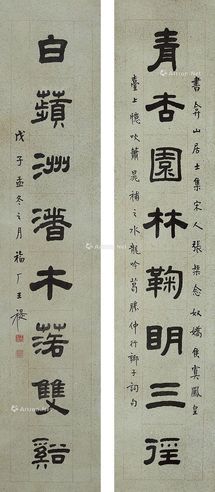 青杏園林鞠明三徑
書弇山居士集宋人張榘念奴嬌侯寘鳳皇
臺上憶吹簫晁補之水龍吟葛勝仲行薌子詞句
白蘋洲渚木落雙谿
戊子孟冬之月福厂王禔